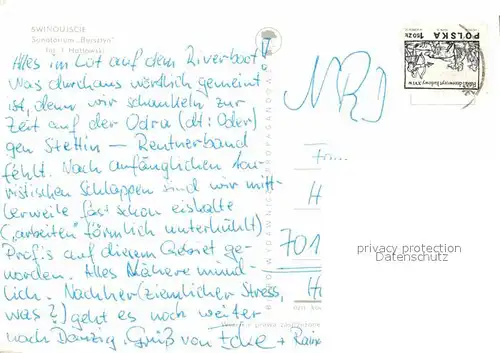 SWINOUJSCIE
Sanatorium „Bursztyn"
fot. J. Makowski
Alles im Lot auf dem Riverboat!
Was durchaus wörtlich gemeint
ist, denn wir schaukeln zur
Zeit auf der Odra (dt: Oder)
gen Stettin – Rentnerband
fehlt. Nach anfänglichen tou-
ristischen Schlappen sind wir mitt-
lerweile fast schon eiskalte
(„arbeiten" förmlich unterkühlt)
Profis auf diesem Gebiet ge-
worden. Alles Nähere münd-
lich. Nachher (ziemlicher Stress,
was?) geht es noch weiter
nach Danzig. Gruß von Ecke + Raine
NRD
Frau
H
701
H
POLSKA
1,50 ZŁ
privacy protection
Datenschutz